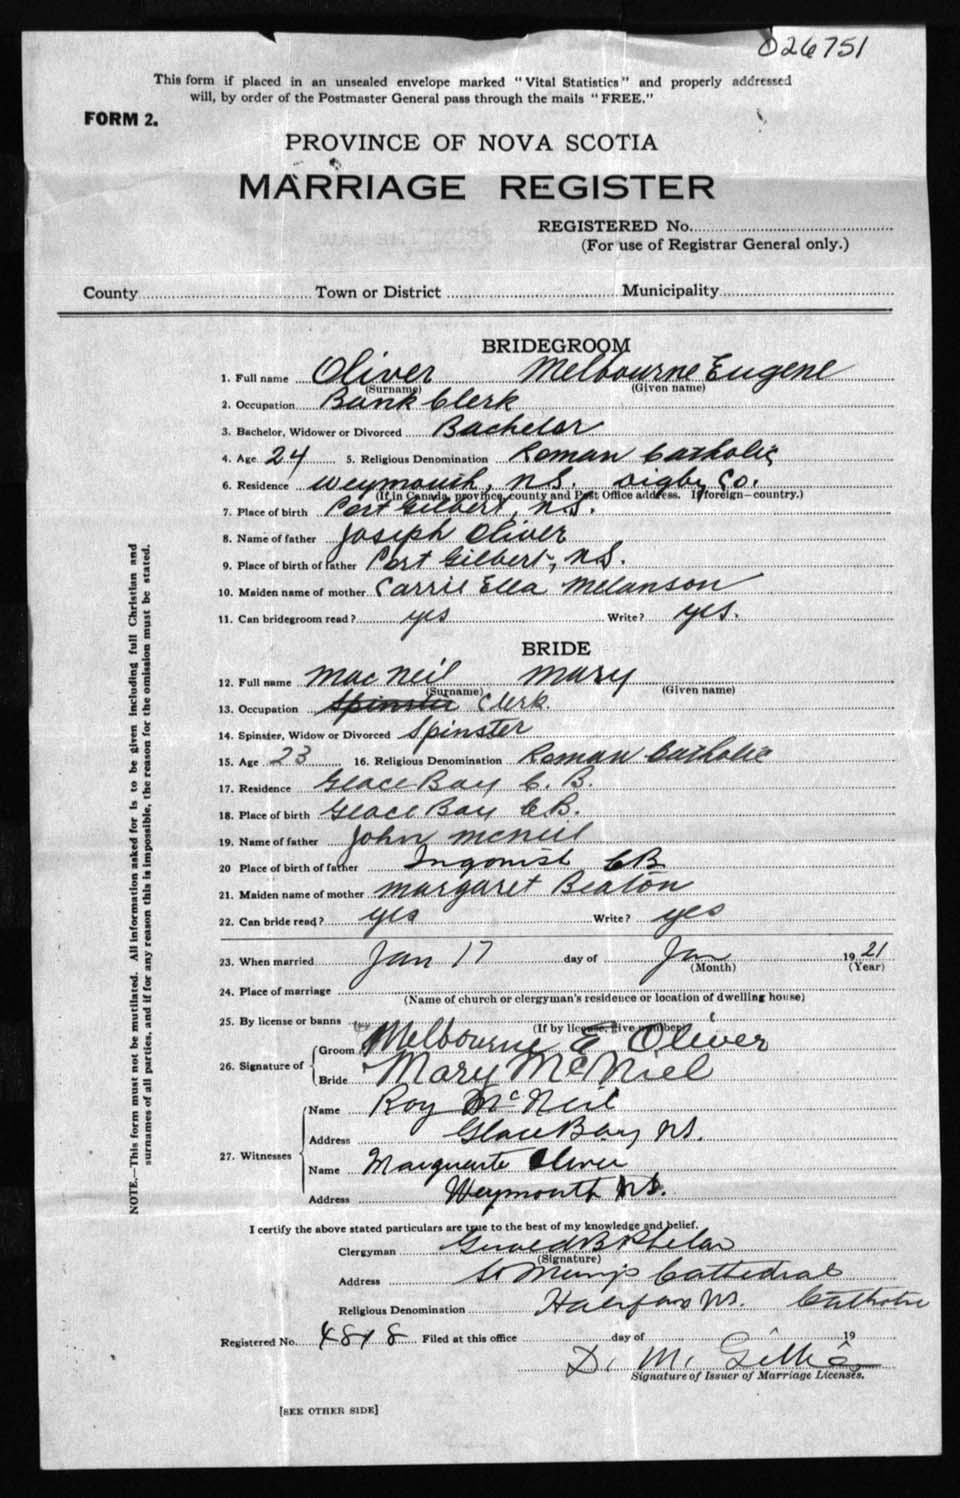 026751
This form if placed in an unsealed envelope marked "Vital Statistics" and properly addressed
will, by order of the Postmaster General pass through the mails "FREE."
FORM 2.
PROVINCE OF NOVA SCOTIA
MARRIAGE REGISTER
REGISTERED No.
(For use of Registrar General only.)
County Town or District Municipality
BRIDEGROOM
1. Full name Oliver Melbourne Eugene
(Surname) (Given name)
2. Occupation Bank Clerk
3. Bachelor, Widower or Divorced Bachelor
4. Age 24 5. Religious Denomination Roman Catholic
6. Residence Weymouth, N.S. Digby Co.
(If in Canada, province, county and Post Office address. If foreign—country.)
7. Place of birth Port Gilbert, N.S.
8. Name of father Joseph Oliver
9. Place of birth of father Port Gilbert, N.S.
10. Maiden name of mother Carrie Ella Melanson
11. Can bridegroom read? yes Write? yes.
BRIDE
12. Full name MacNeil Mary
(Surname) (Given name)
13. Occupation Spinster Clerk.
14. Spinster, Widow or Divorced Spinster
15. Age 23 16. Religious Denomination Roman Catholic
17. Residence Glace Bay C. B.
18. Place of birth Glace Bay C.B.
19. Name of father John McNeil
20 Place of birth of father Ingonish CB
21. Maiden name of mother Margaret Beaton
22. Can bride read? yes Write? yes
23. When married Jan 17 day of Jan 1921
(Month) (Year)
24. Place of marriage
(Name of church or clergyman's residence or location of dwelling house)
25. By license or banns
(If by license, give number)
26. Signature of Groom Melbourne E Oliver
Bride Mary McNiel
27. Witnesses
Name Roy McNeil
Address Glace Bay N.S.
Name Marguerite Oliver
Address Weymouth N.S.
NOTE.—This form must not be mutilated. All information asked for is to be given including full Christian and
surnames of all parties, and if for any reason this is impossible, the reason for the omission must be stated.
I certify the above stated particulars are true to the best of my knowledge and belief.
Clergyman Gerald B Phelan
(Signature)
Address St Mary's Cathedral
Religious Denomination Halifax N.S. Catholic
Registered No. 4818 Filed at this office day of 19
D. M. Gillis
Signature of Issuer of Marriage Licenses.
[SEE OTHER SIDE]